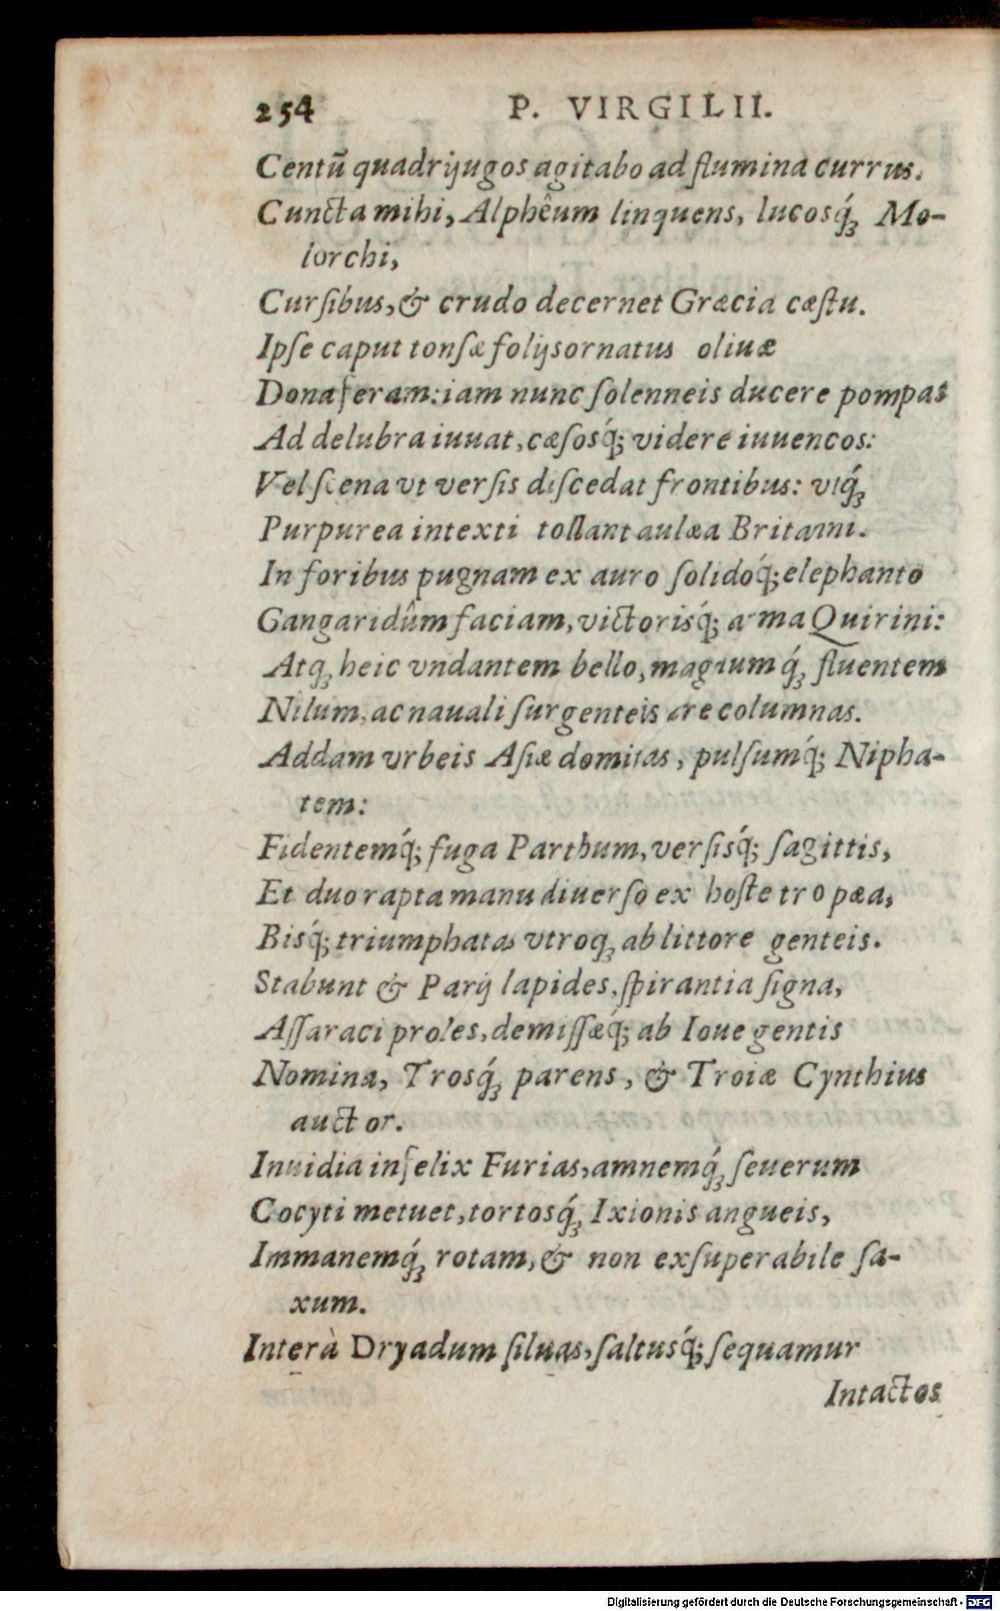 254 P. VIRGILII.
Centū quadrĳugos agitabo ad flumina currus.
Cuncta mihi, Alphêum linquens, lucosq́ꝫ Mo-
lorchi,
Curſibus, & crudo decernet Græcia cæſtu.
Ipſe caput tonſæ folĳs ornatus oliuæ
Dona feram: iam nunc ſolenneis ducere pompas
Ad delubra iuuat, cæſosq́; videre iuuencos:
Vel ſcena vt verſis diſcedat frontibus: vtq́ꝫ
Purpurea intexti tollant aulæa Britanni.
In foribus pugnam ex auro ſolidoq́; elephanto
Gangaridûm faciam, victorisq́; arma Quirini:
Atqꝫ heic vndantem bello, magnumq́ꝫ fluentem
Nilum, ac nauali ſurgenteis ære columnas.
Addam vrbeis Aſiæ domitas, pulſumq́; Nipha-
tem:
Fidentemq́; fuga Parthum, verſisq́; ſagittis,
Et duo rapta manu diuerſo ex hoſte tropæa,
Bisq́; triumphatas vtroqꝫ ab littore genteis.
Stabunt & Parĳ lapides, ſpirantia ſigna,
Aſſaraci proles, demiſſæq́; ab Ioue gentis
Nomina, Trosq́ꝫ parens, & Troiæ Cynthius
auctor.
Inuidia infelix Furias, amnemq́ꝫ ſeuerum
Cocyti metuet, tortosq́ꝫ Ixionis angueis,
Immanemq́ꝫ rotam, & non exſuperabile ſa-
xum.
Interà Dryadum ſiluas, ſaltusq́; ſequamur
Intactos
Digitalisierung gefördert durch die Deutsche Forschungsgemeinschaft - DFG